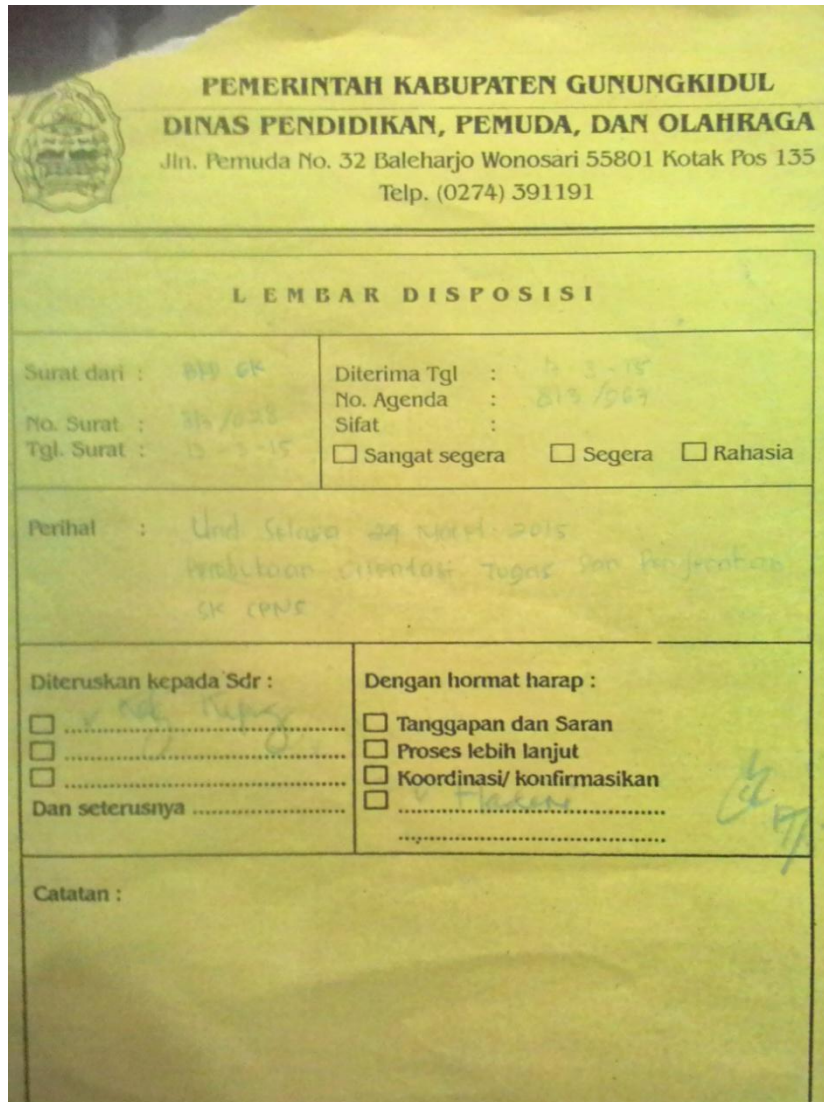 PEMERINTAH KABUPATEN GUNUNGKIDUL
DINAS PENDIDIKAN, PEMUDA, DAN OLAHRAGA
Jln. Pemuda No. 32 Baleharjo Wonosari 55801 Kotak Pos 135
Telp. (0274) 391191
LEMBAR DISPOSISI
Surat dari : BKD GK
No. Surat :
Tgl. Surat : 13 - 3 - 15
Diterima Tgl : - 3 - 15
No. Agenda : 813 /
Sifat :
Sangat segera Segera Rahasia
Perihal : Und. 24 Maret 2015
Pembukaan Orientasi Tugas dan Penyerahan
SK CPNS
Diteruskan kepada Sdr :
..............................
..............................
..............................
Dan seterusnya ................
Dengan hormat harap :
Tanggapan dan Saran
Proses lebih lanjut
Koordinasi/ konfirmasikan
..............................
..............................
Catatan :